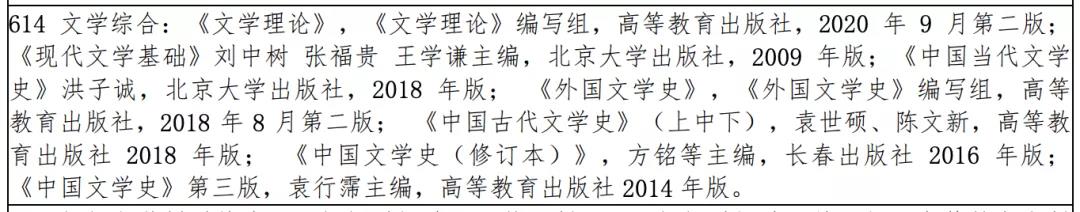 614 文学综合：《文学理论》，《文学理论》编写组，高等教育出版社，2020 年 9 月第二版；
《现代文学基础》刘中树 张福贵 王学谦主编，北京大学出版社，2009 年版；《中国当代文学
史》洪子诚，北京大学出版社，2018 年版； 《外国文学史》，《外国文学史》编写组，高等
教育出版社，2018 年 8 月第二版； 《中国古代文学史》（上中下），袁世硕、陈文新，高等教
育出版社 2018 年版； 《中国文学史（修订本）》，方铭等主编，长春出版社 2016 年版；
《中国文学史》第三版，袁行霈主编，高等教育出版社 2014 年版。